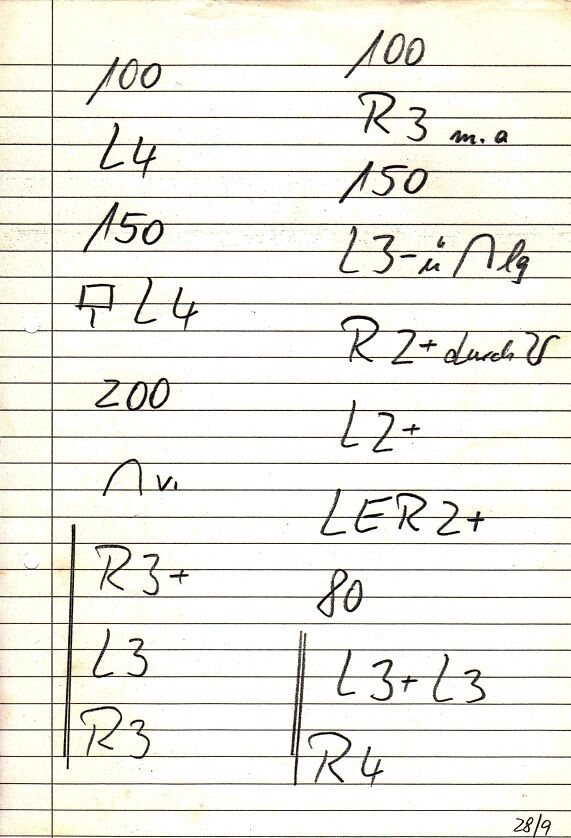 100
L4
150
L4
200
∩ v.
R3+
L3
R3
100
R3 m.a
150
L3- ü ∩ lg
R2+ durch
L2+
LER2+
80
L3+ L3
R4
28/9